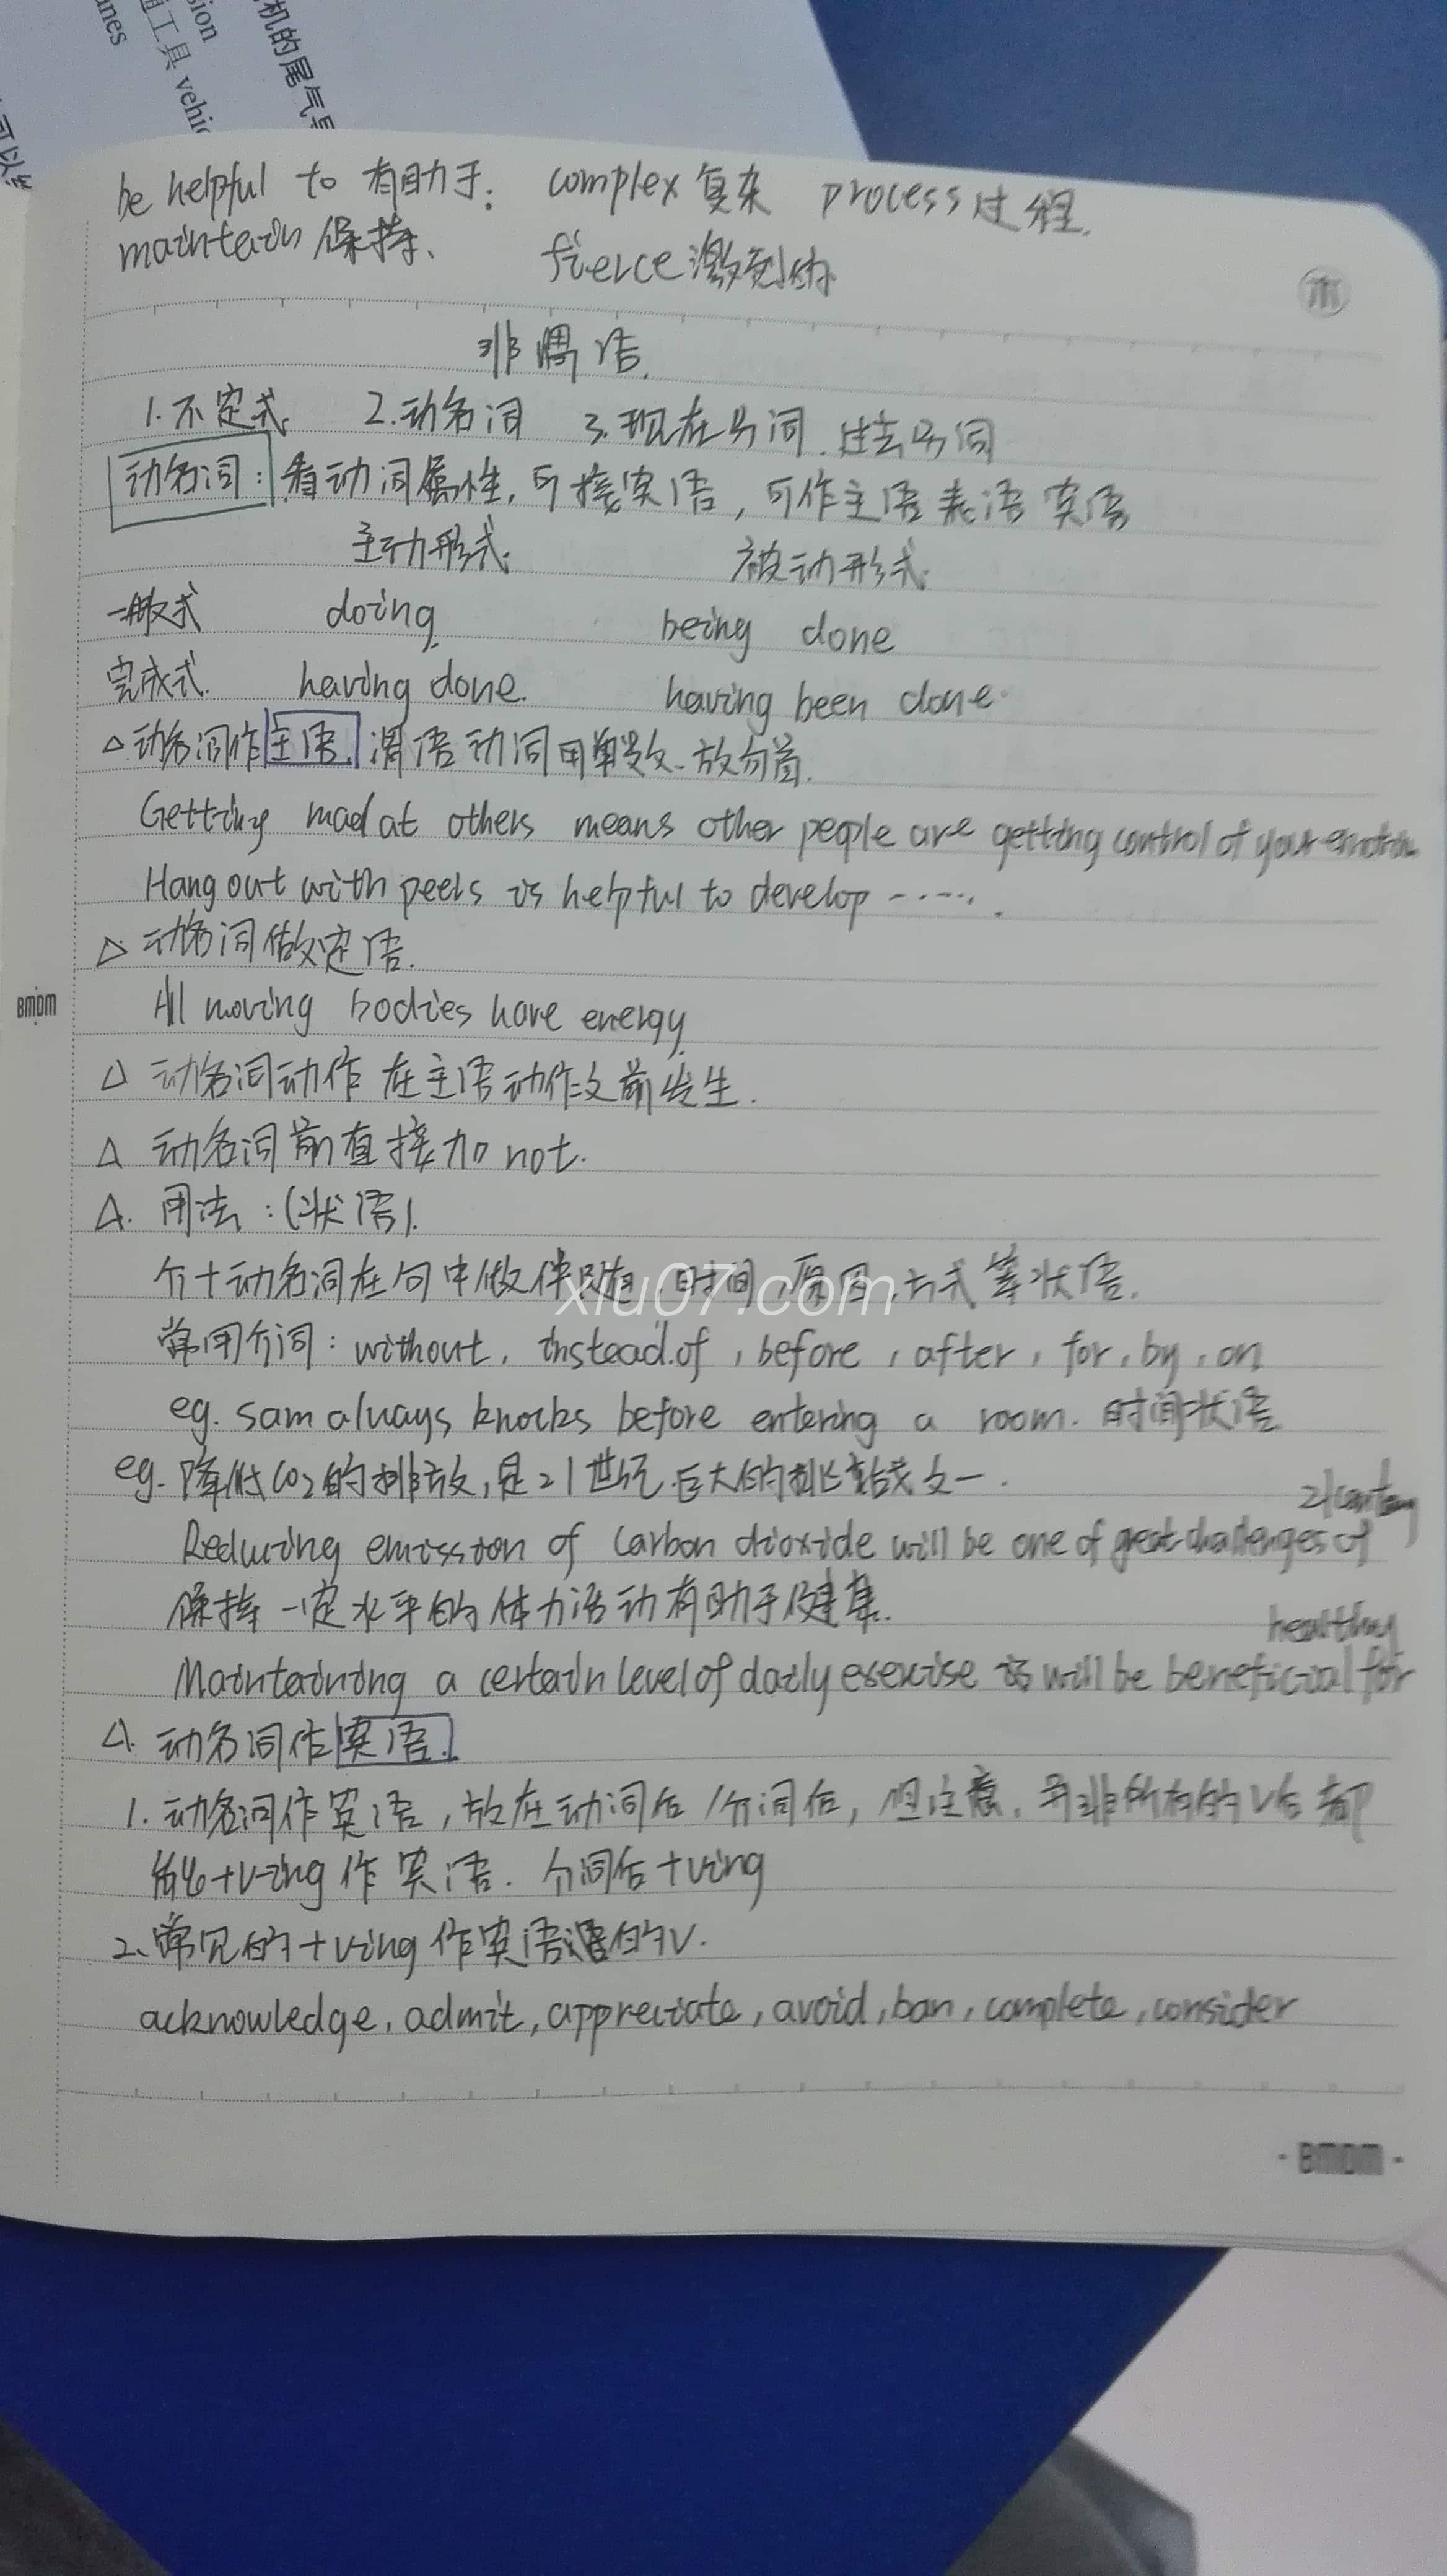 机的尾气
sion
工具 vehic
nes
可以
be helpful to 有助于. complex 复杂 process 过程.
maintain 保持、 fierce 激烈的
非谓语.
1. 不定式 2. 动名词 3. 现在分词. 过去分词
动名词: 有动词属性, 可接宾语, 可作主语 表语 宾语
主动形式. 被动形式.
一般式 doing. being done
完成式. having done. having been done.
△动名词作主语. 谓语动词用单数. 放句首.
Getting mad at others means other people are getting control of your
Hang out with peers is helpful to develop ······.
△ 动名词做定语.
All moving bodies have energy.
△ 动名词动作 在主语动作之前发生.
△ 动名词前直接加 not.
△. 用法: (状语).
介+动名词在句中做伴随, 时间, 原因, 方式等状语.
xiu07.com
常用介词: without, instead.of, before, after, for, by, on
eg. sam always knocks before entering a room. 时间状语
eg. 降低CO2的排放, 是21世纪.巨大的挑战之一.
21century
Reducing emission of carbon dioxide will be one of great challenges of
保持一定水平的体力活动有助于健康.
healthy
Maintaining a certain level of daily exercise is will be beneficial for
△. 动名词作宾语.
1. 动名词作宾语, 放在动词后/介词后, 但注意, 并非所有的V后都
能+v-ing 作宾语. 介词后+ving
2、常见的+ving作宾语的V.
acknowledge, admit, appreciate, avoid, ban, complete, consider
BMDM
- BMDM -